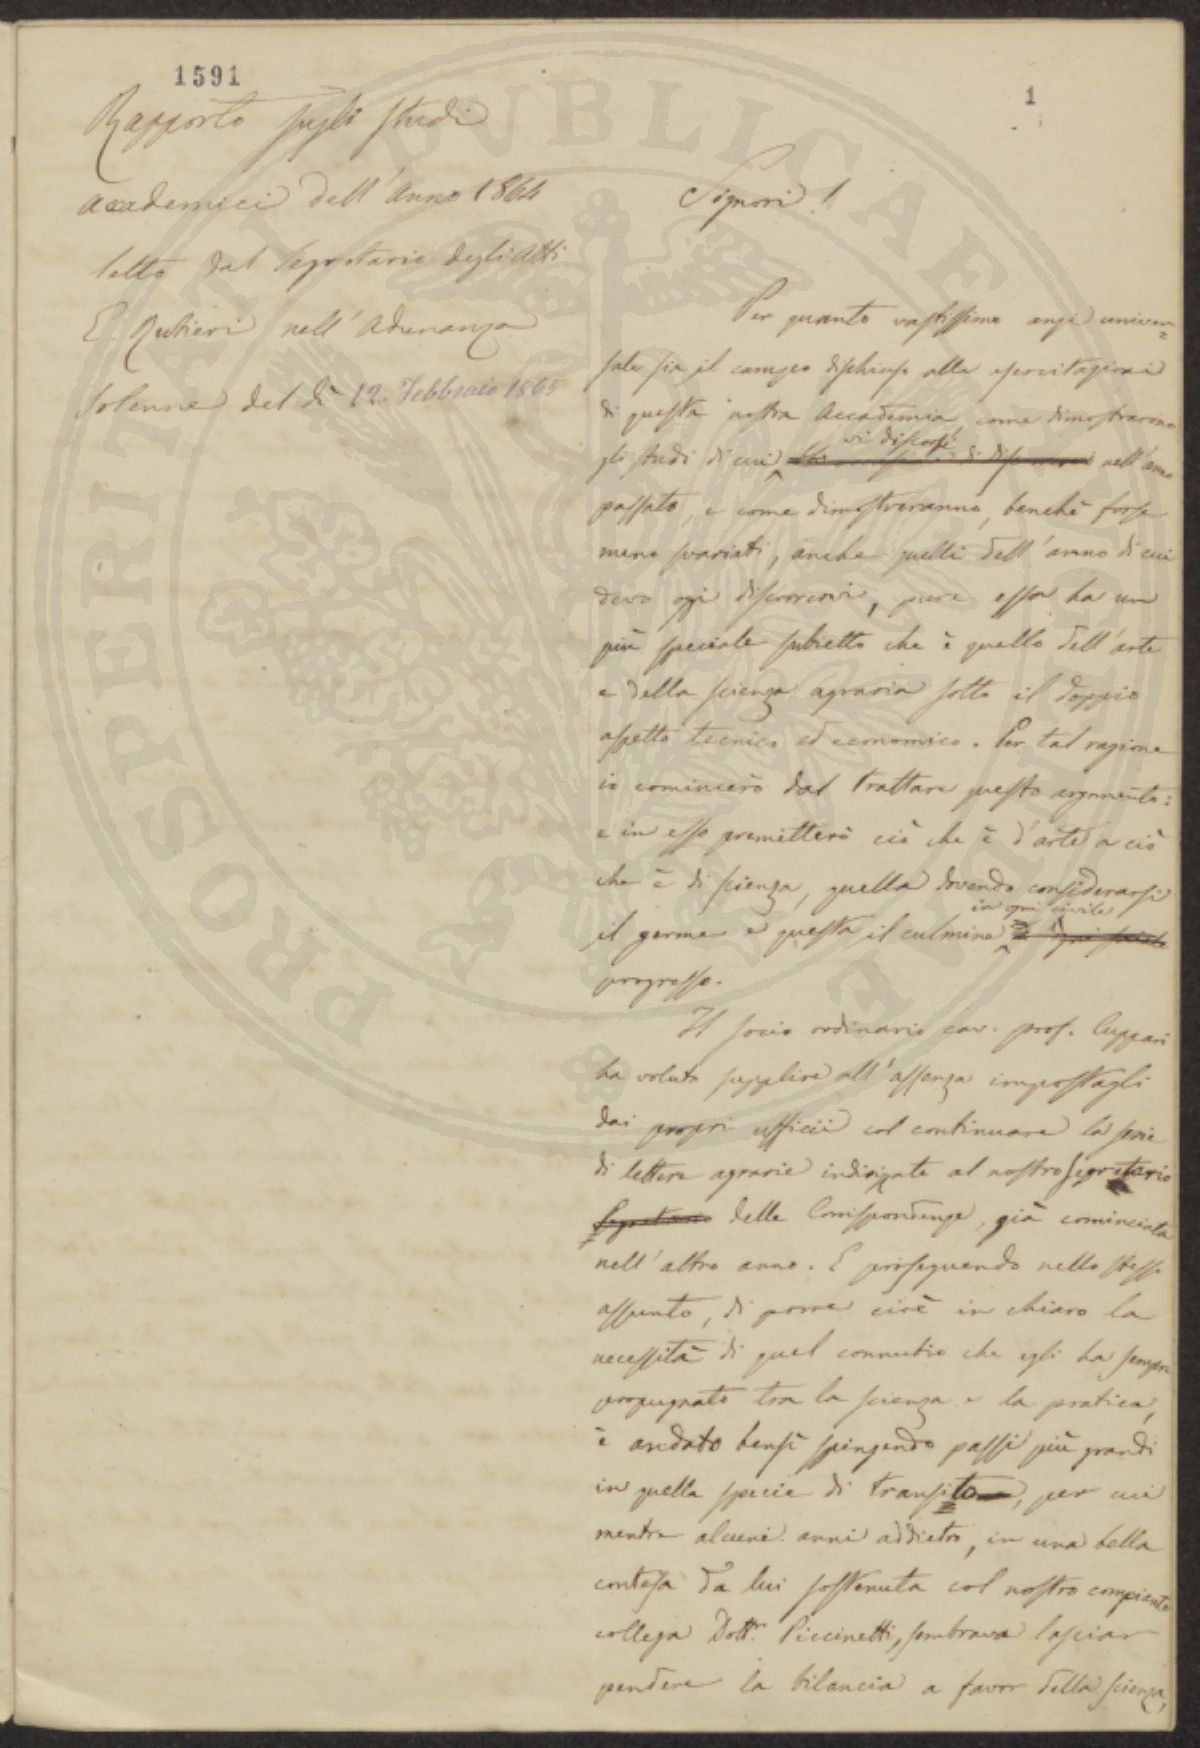 1591
1
Rapporto sugli studi
accademici dell'anno 1864
letto dal Segretario degli Atti
E. Rubieri nell'Adunanza
Solenne del dì 12. Febbraio 1865
Signori!
Per quanto vastissimo anzi univer=
sale sia il campo dischiuso alle esercitazioni
di questa nostra Accademia, come dimostrarono
vi discorsi
gli studi di cui nell'anno
passato, e come dimostreranno, benchè forse
meno svariati, anche quelli dell'anno di cui
devo oggi discorrervi, pure essa ha un
più speciale subietto che è quello dell'arte
e della scienza agraria sotto il doppio
aspetto tecnico ed economico. Per tal ragione
io comincerò dal trattare questo argomento:
e in esso premetterò ciò che è d'arte a ciò
che è di scienza, quella dovendo considerarsi
in ogni civile
il germe e questa il culmine
progresso.
Il socio ordinario cav. prof. Cuppari
ha voluto supplire all'assenza impostagli
dai propri ufficii col continuare la serie
di lettere agrarie indirizzate al nostro Segretario
Segretario delle Corrispondenze, già cominciata
nell'altro anno. E proseguendo nello stesso
assunto, di porre cioè in chiaro la
necessità di quel connubio che egli ha sempre
propugnato tra la scienza e la pratica,
è andato bensì spingendo passi più grandi
in quella specie di transito, per cui
mentre alcuni anni addietro, in una bella
contesa da lui sostenuta col nostro compianto
collega Dott.r Piccinetti, sembrava lasciar
pendere la bilancia a favor della scienza,
PROSPERITATI PUBLICAE AUGENDAE